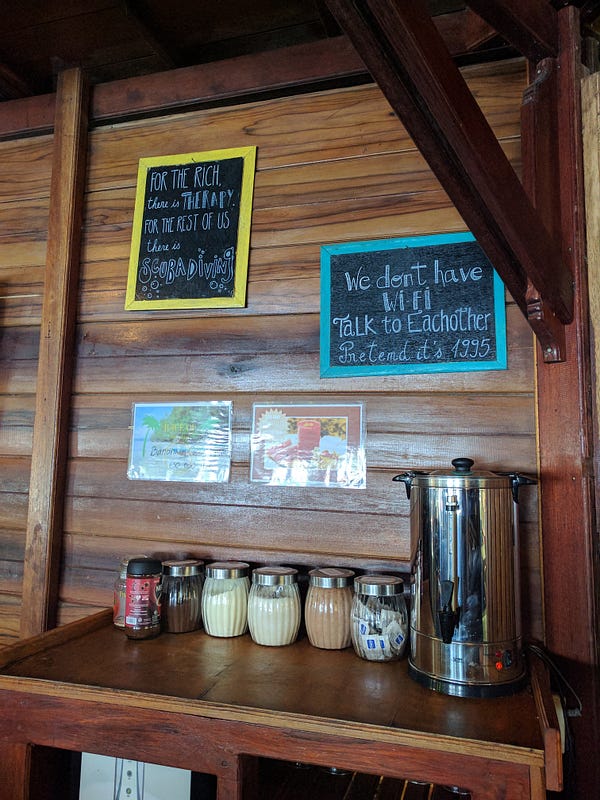 FOR THE RICH,
there is THERAPY.
FOR THE REST OF US
there is
SCUBADIVING
We don't have
WIFI
Talk to Eachother
Pretend it's 1995